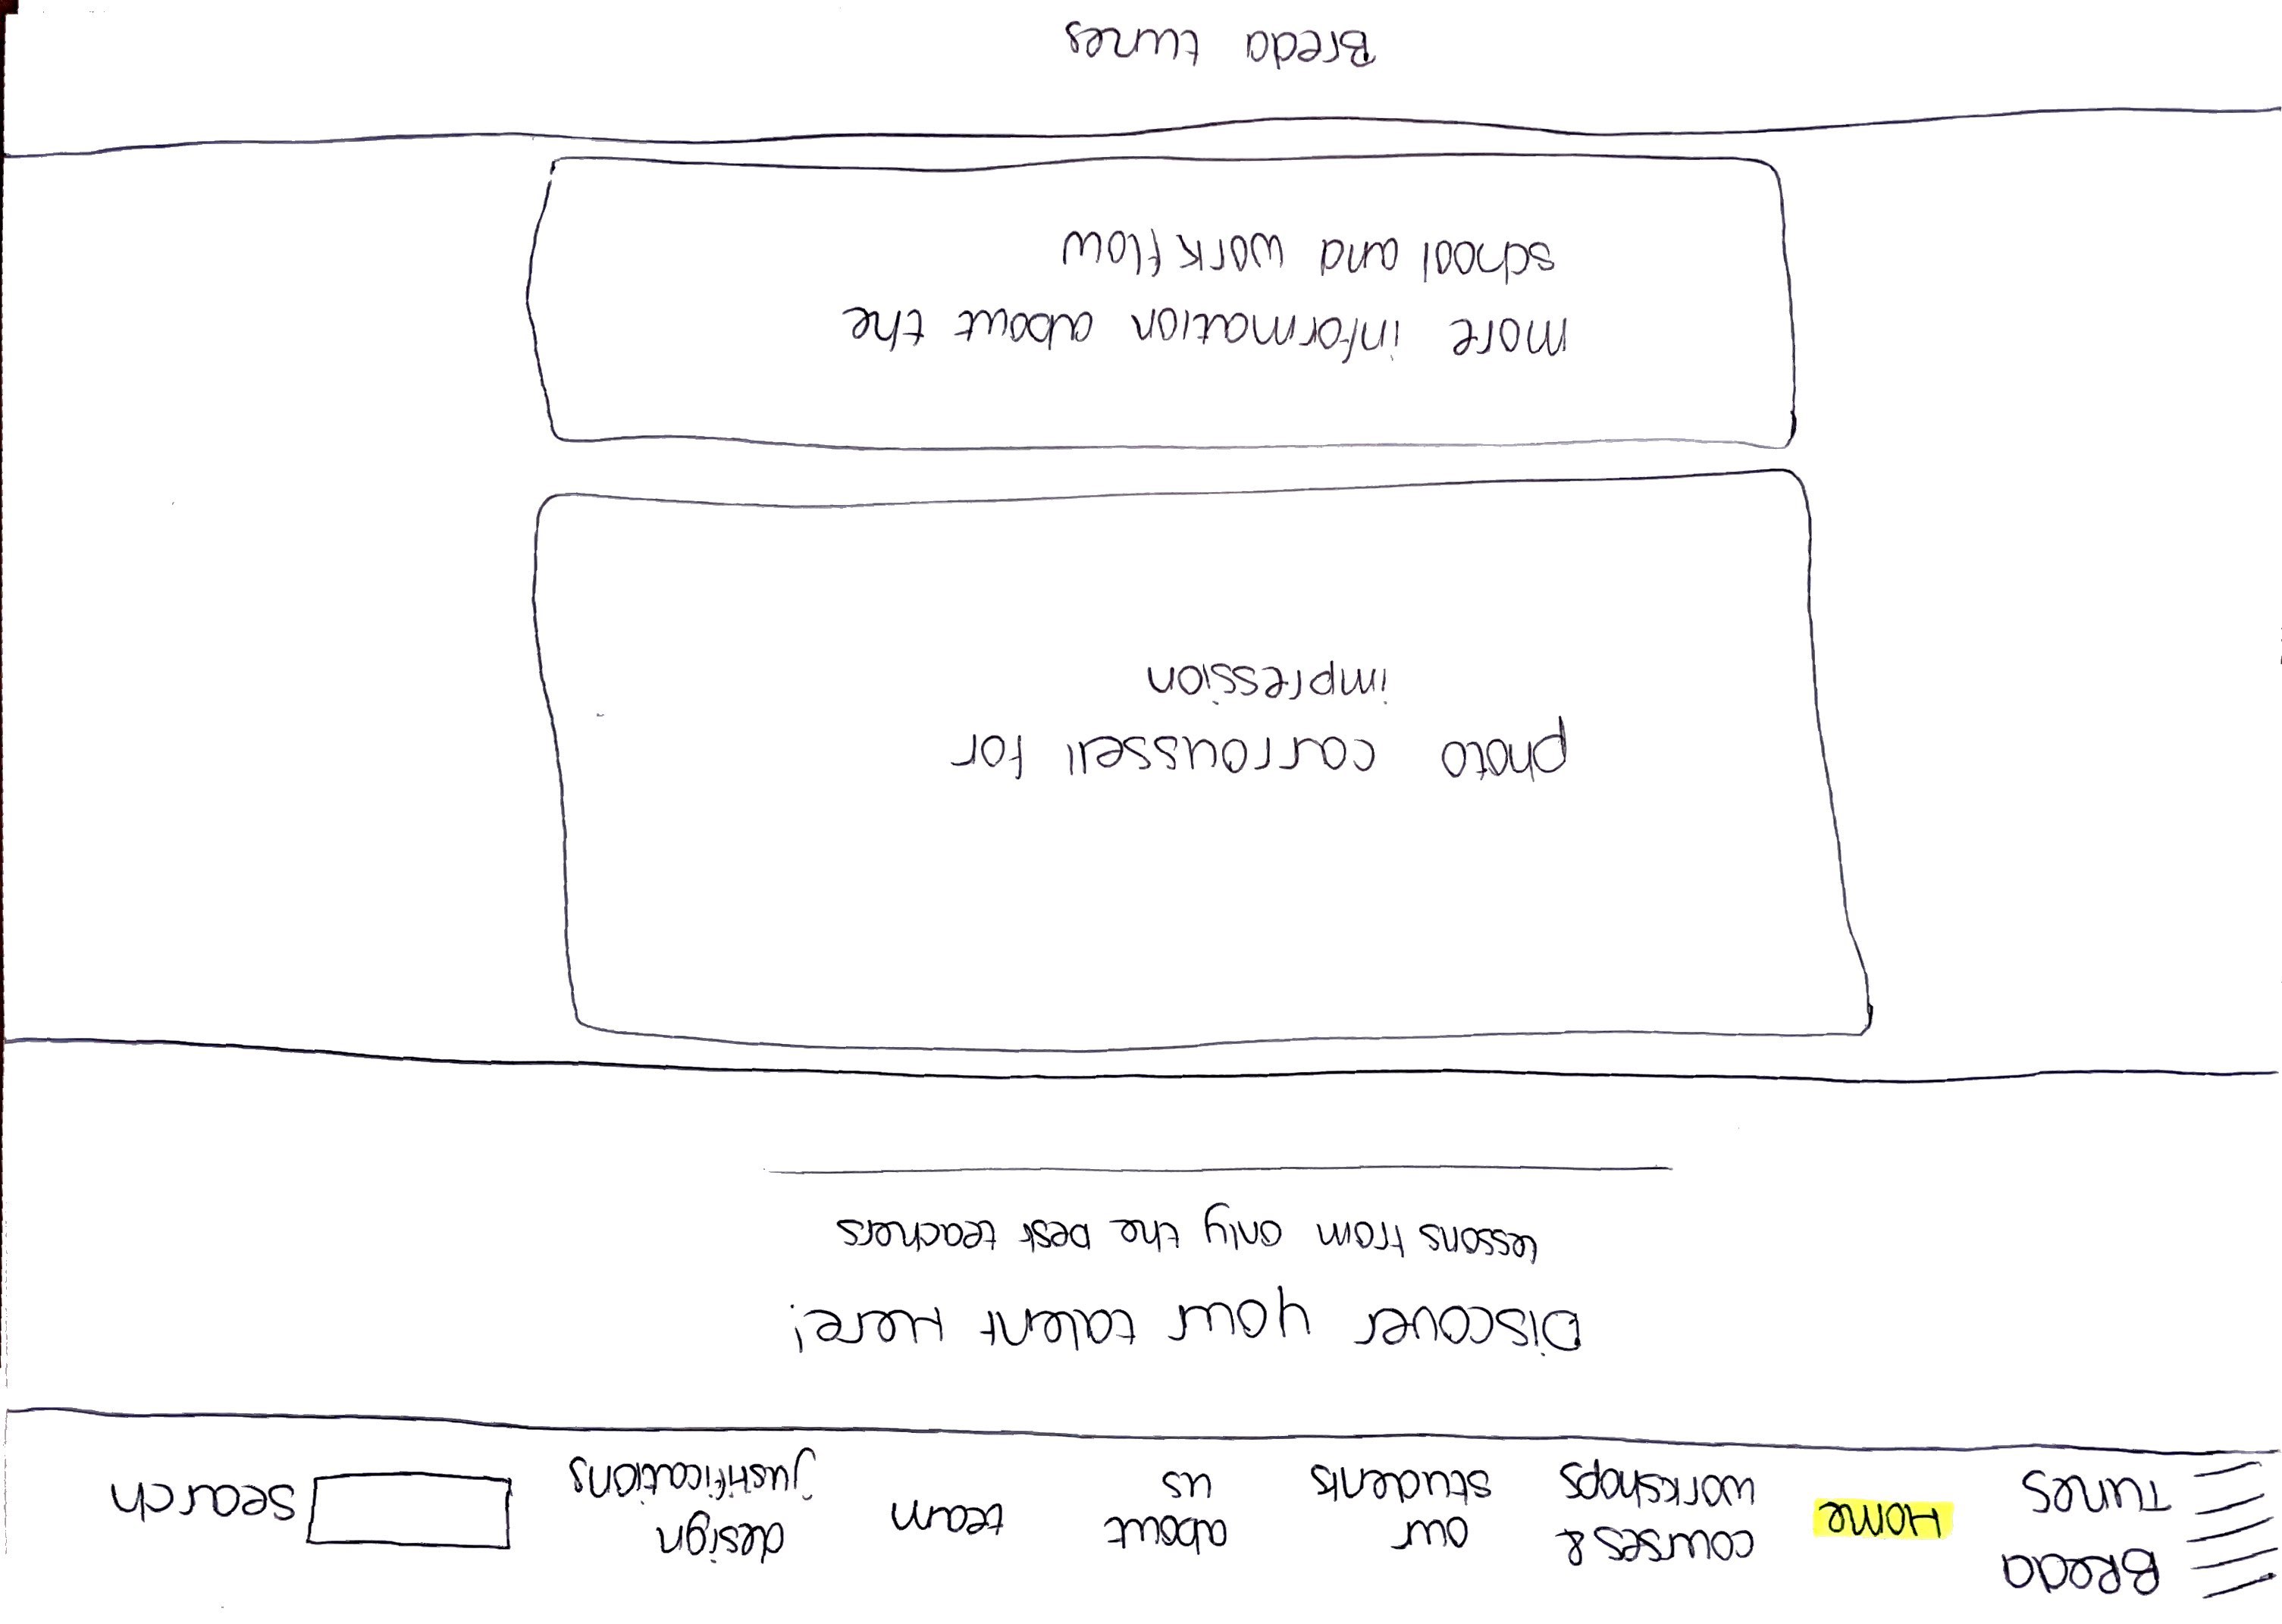 Breda
Tunes
Home
courses &
workshops
our
students
about
us
team
design
justifications
search
Discover your talent Here!
lessons from only the best teachers
photo carroussell for
impression
more information about the
school and workflow
Breda tunes